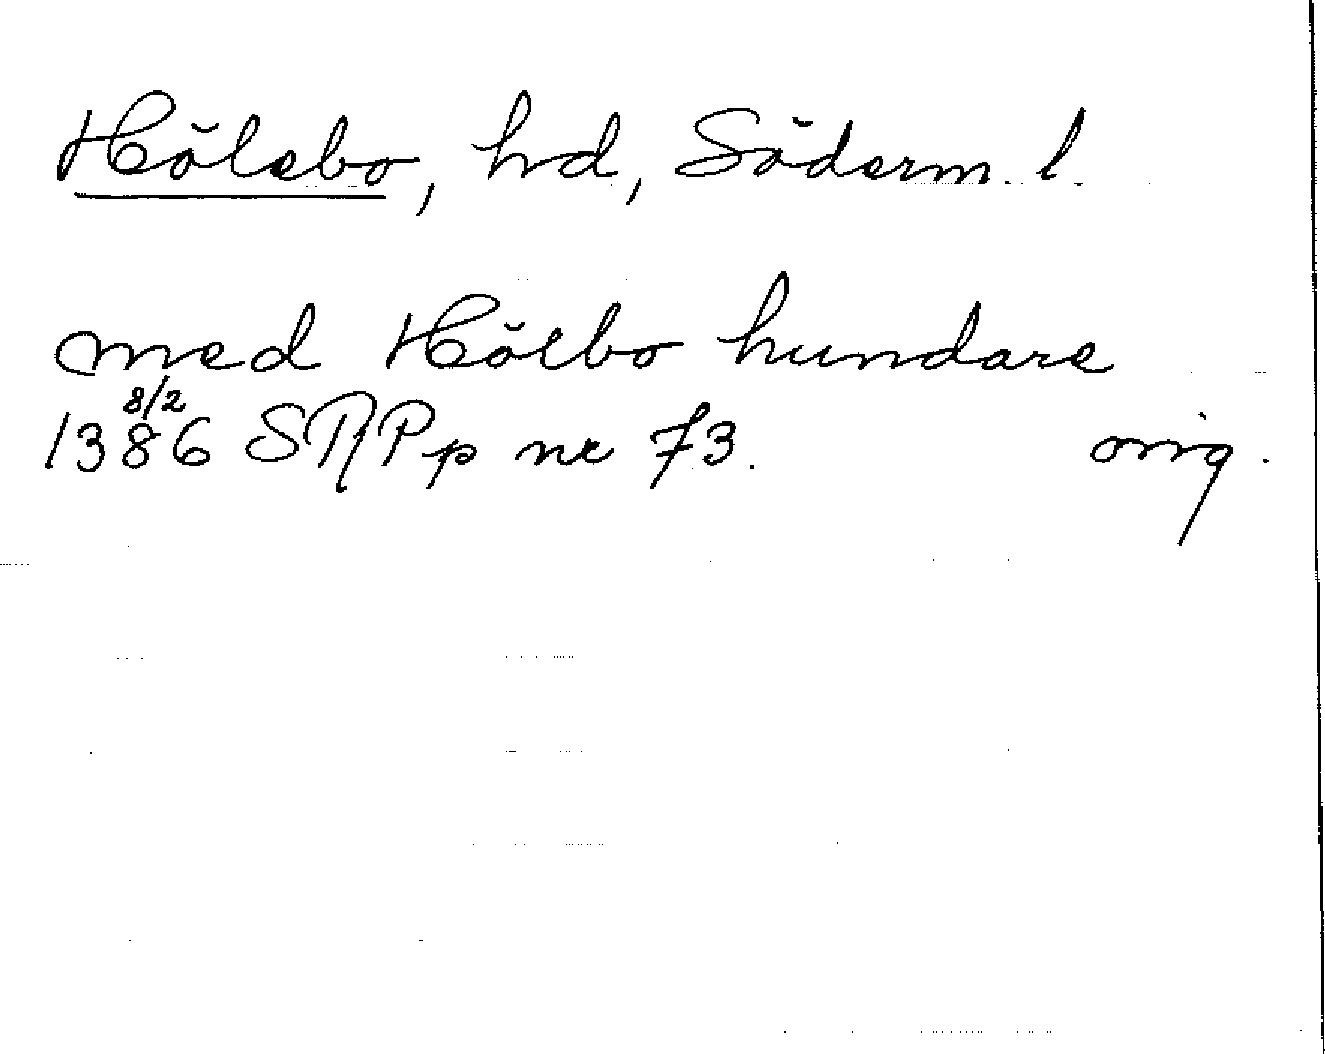 Hölebo, hd, Söderm. l.
med Hölbo hundare
1386 8/2 SRPp nr 73. orig.